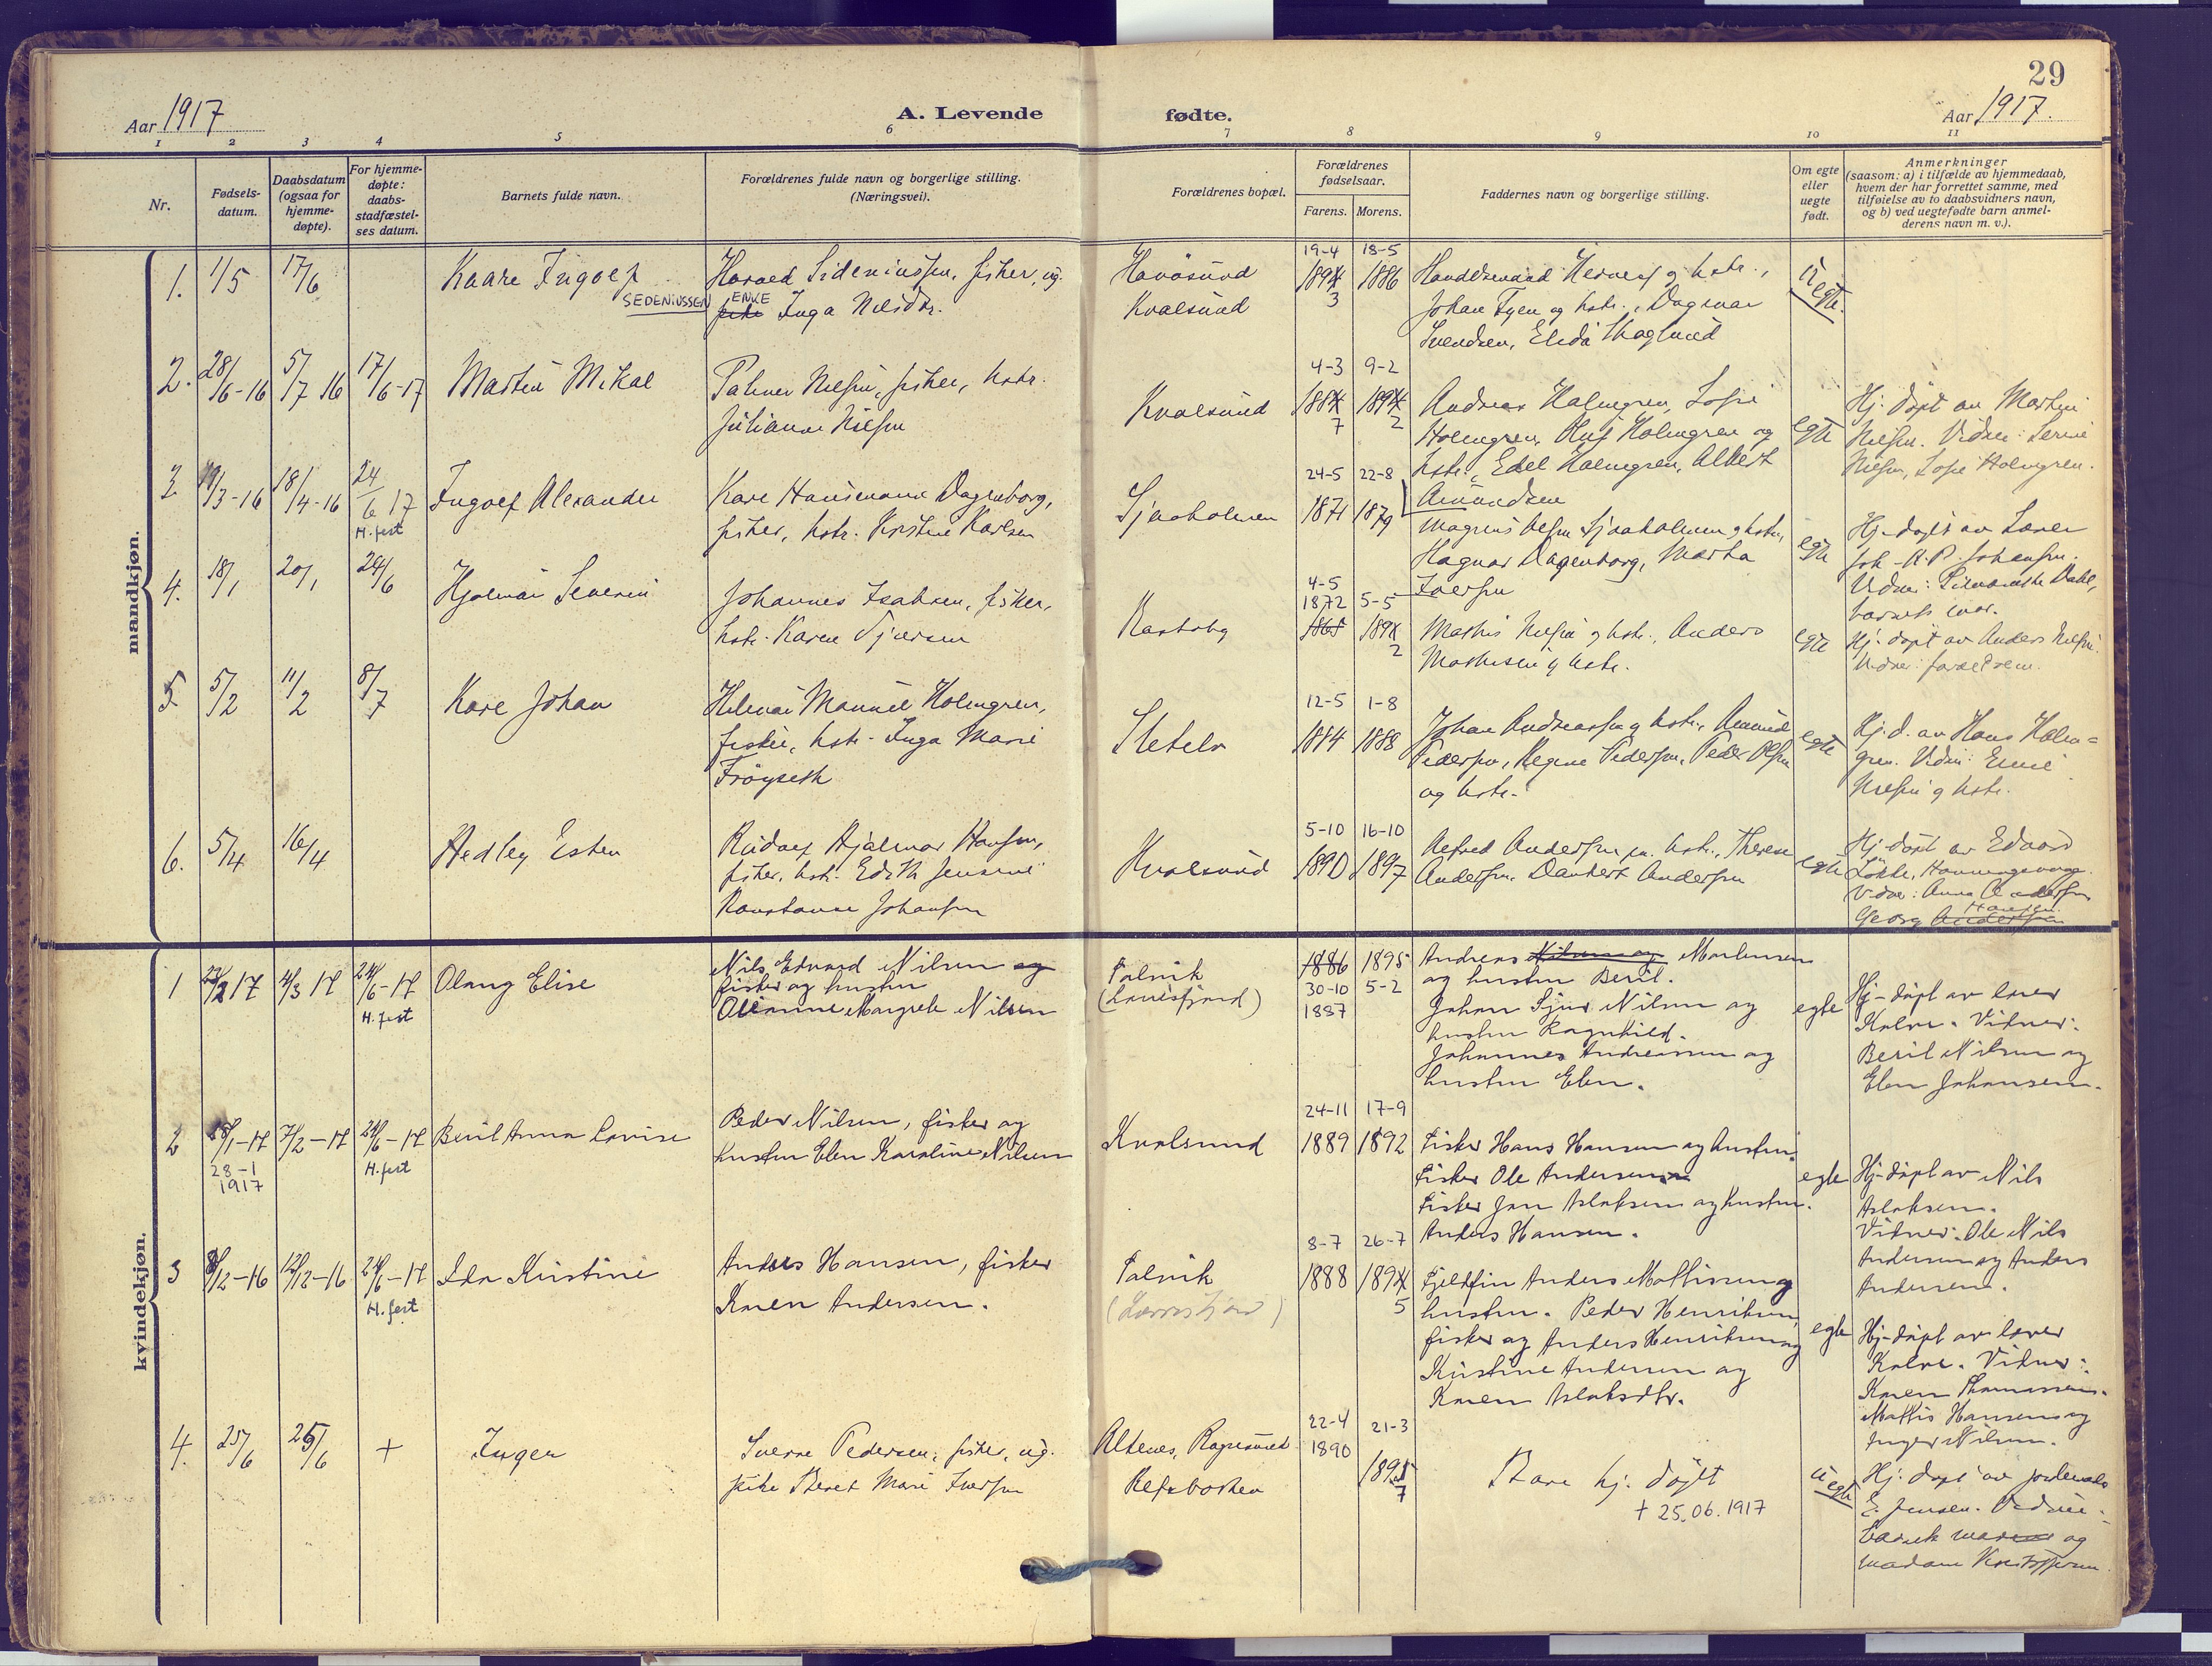 29
Aar 1917
A. Levende
fødte.
Aar 1917.
1 2 3 4 5 6 7 8 9 10 11
Nr.
Fødsels-
datum.
Daabsdatum
(ogsaa for
hjemme-
døpte).
For hjemme-
døpte:
daabs-
stadfæstel-
ses datum.
Barnets fulde navn.
Forældrenes fulde navn og borgerlige stilling.
(Næringsvei).
Forældrenes bopæl.
Forældrenes
fødselsaar.
Farens. Morens.
Faddernes navn og borgerlige stilling.
Om egte
eller
uegte
født.
Anmerkninger
(saasom: a) i tilfælde av hjemmedaab,
hvem der har forrettet samme, med
tilføielse av to daabsvidners navn,
og b) ved uegtefødte barn anmel-
derens navn m. v.).
mandkjøn.
1. 1/5 17/6
Kaare Ingolf
SEDENIUSSEN
Harald Sideniussen, fisker, ug.
ENKE
pike Inga Nilsdtr.
Havøsund
Kvalsund
19-4 18-5
1894 1886
3
Johan Fyen og hstr., Dagmar
Svendsen, Elida Skoglund
uegte.
2. 28/6-16 5/7 16 17/6-17
Martin Mikal
Palmer Nilsen, fisker, hstr.
Juliane Nilsen
Kvalsund
4-3 9-2
1884 1894
7 2
Andreas Holmgren, Sofie
Holmgren, Oluf Holmgren og
hstr., Edel Holmgren, Albert
Amundsen
egte
Hj. døpt av Martin
Nilsen. Vidner:
Nilsen, Sofie Holmgren.
3 19/3-16 18/4-16 24/6 17
H. fest
Ingolf Alexander
Kare Hansemann Dagenborg,
fisker, hstr. Kristine Karlsen
Sjaaholmen
24-5 22-8
1871 1879
Magnus Olsen Sjaaholmen og hstr.,
Hagnar Dagenborg, Marta
Iversen
egte
Hj. døpt av Lærer
Joh. A. P. Johansen.
Vidner: Dahl,
barnets mor.
4. 18/1 20/1 24/6
Hjalmar Severin
Johannes Isaksen, fisker,
hstr. Karen
4-5
1872 5-5
1865 1891
2
Mathis Nilsen og hstr., Anders
Mathisen og hstr.
egte
Hj. døpt av Anders Nilsen.
Vidner: forældrene.
5. 5/2 11/2 8/7
Kare Johan
Hilmar Manuel Holmgren,
fisker, hstr. Inga Marie
Frøyseth
12-5 1-8
1884 1888
Johan Andreassen og hstr., Amund
Pedersen, Regine Pedersen, Peder Olsen
og hstr.
egte
Hj. d. av Hans Holm=
gren. Vidner:
Nilsen og hstr.
6. 5/4 16/4
Hedley Esten
Rudolf Hjalmar Hansen,
fisker, hstr. Edith Jensine
Konstanse Johansen
Kvalsund
5-10 16-10
1890 1897
Alfred Andersen m. hstr., Therese
Andersen, Dankert Andersen
egte
Hj. døpt av Edvard
Løkke, Honningsvaag.
Vidner: Anna Andersen
Hansen.
Georg Andersen
kvindekjøn.
1 23/2 17 4/3 17 24/6-17
H. fest
Olaug Elise
Nils Edvard Nilsen og
fisker og hustru
Olianne Margrete Nilsen
Talvik
1886 1895
30-10 5-2
1887
Andreas Nilsen og Mortensen
og hustru Beril.
Johan Sjur Nilsen og
hustru Ragnhild.
Johannes Andreassen og
hustru Elen.
egte
Hj-døpt av lærer
Kalve. Vidner:
Beril Nilsen og
Elen Johansen.
2 28/1-17 7/2-17 24/6-17
28-1
1917
H. fest
Beril Anna Lovise
Peder Nilsen, fisker og
hustru Elen Karoline Nilsen
Kvalsund
24-11 17-9
1889 1892
Fisker Hans Hansen og hustru.
Fisker Ole Andersen
Fisker Jon Aslaksen og hustru.
Anders Hansen.
egte
Hj-døpt av Nils
Aslaksen.
Vidner: Ole Nils
Andersen og Anders
Andersen.
3 8/12-16 12/12-16 24/6-17
H. fest
Ida Kristine
Anders Hansen, fisker
Karen Andersen.
Talvik
8-7 26-7
1888 1894
5
Fjeldfin Anders Mattisen og
hustru. Peder Henriksen,
fisker og Anders Henriksen og
Kristine Andersen og
Karen Aslaksdtr.
egte
Hj-døpt av lærer
Kalve. Vidner:
Karen Thomassen.
Mattis Hansen og
Inger Nilsen.
4. 25/6 25/6 +
Inger
Sverre Pedersen, fisker, ug.
pike Beret Marie Iversen
Altenes,
Refsbotten
22-4 21-3
1890
1895
7
Bare hj. døpt
+ 25.06.1917
uegte
Hj. døpt av jordemor
E. Jensen. Vidner:
og
madam Kristoffersen